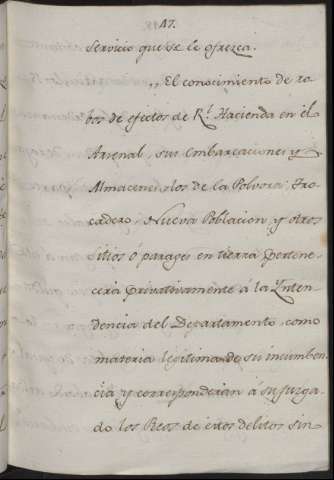 17.
Servicio que se le ofrezca.
,, El conocimiento de ro-
bos de efectos de Rl. Hacienda en el
Arsenal, sus embarcaciones y
Almacenes, los de la Polvora, Tro-
cadero, Nueva Poblacion, y otros
sitios ó parages en tierra pertene-
cerá privativamente á la Inten-
dencia del Departamento, como
materia legitima de su incumben-
cia y corresponderan á su juzga-
do los Reos de estos delitos sin